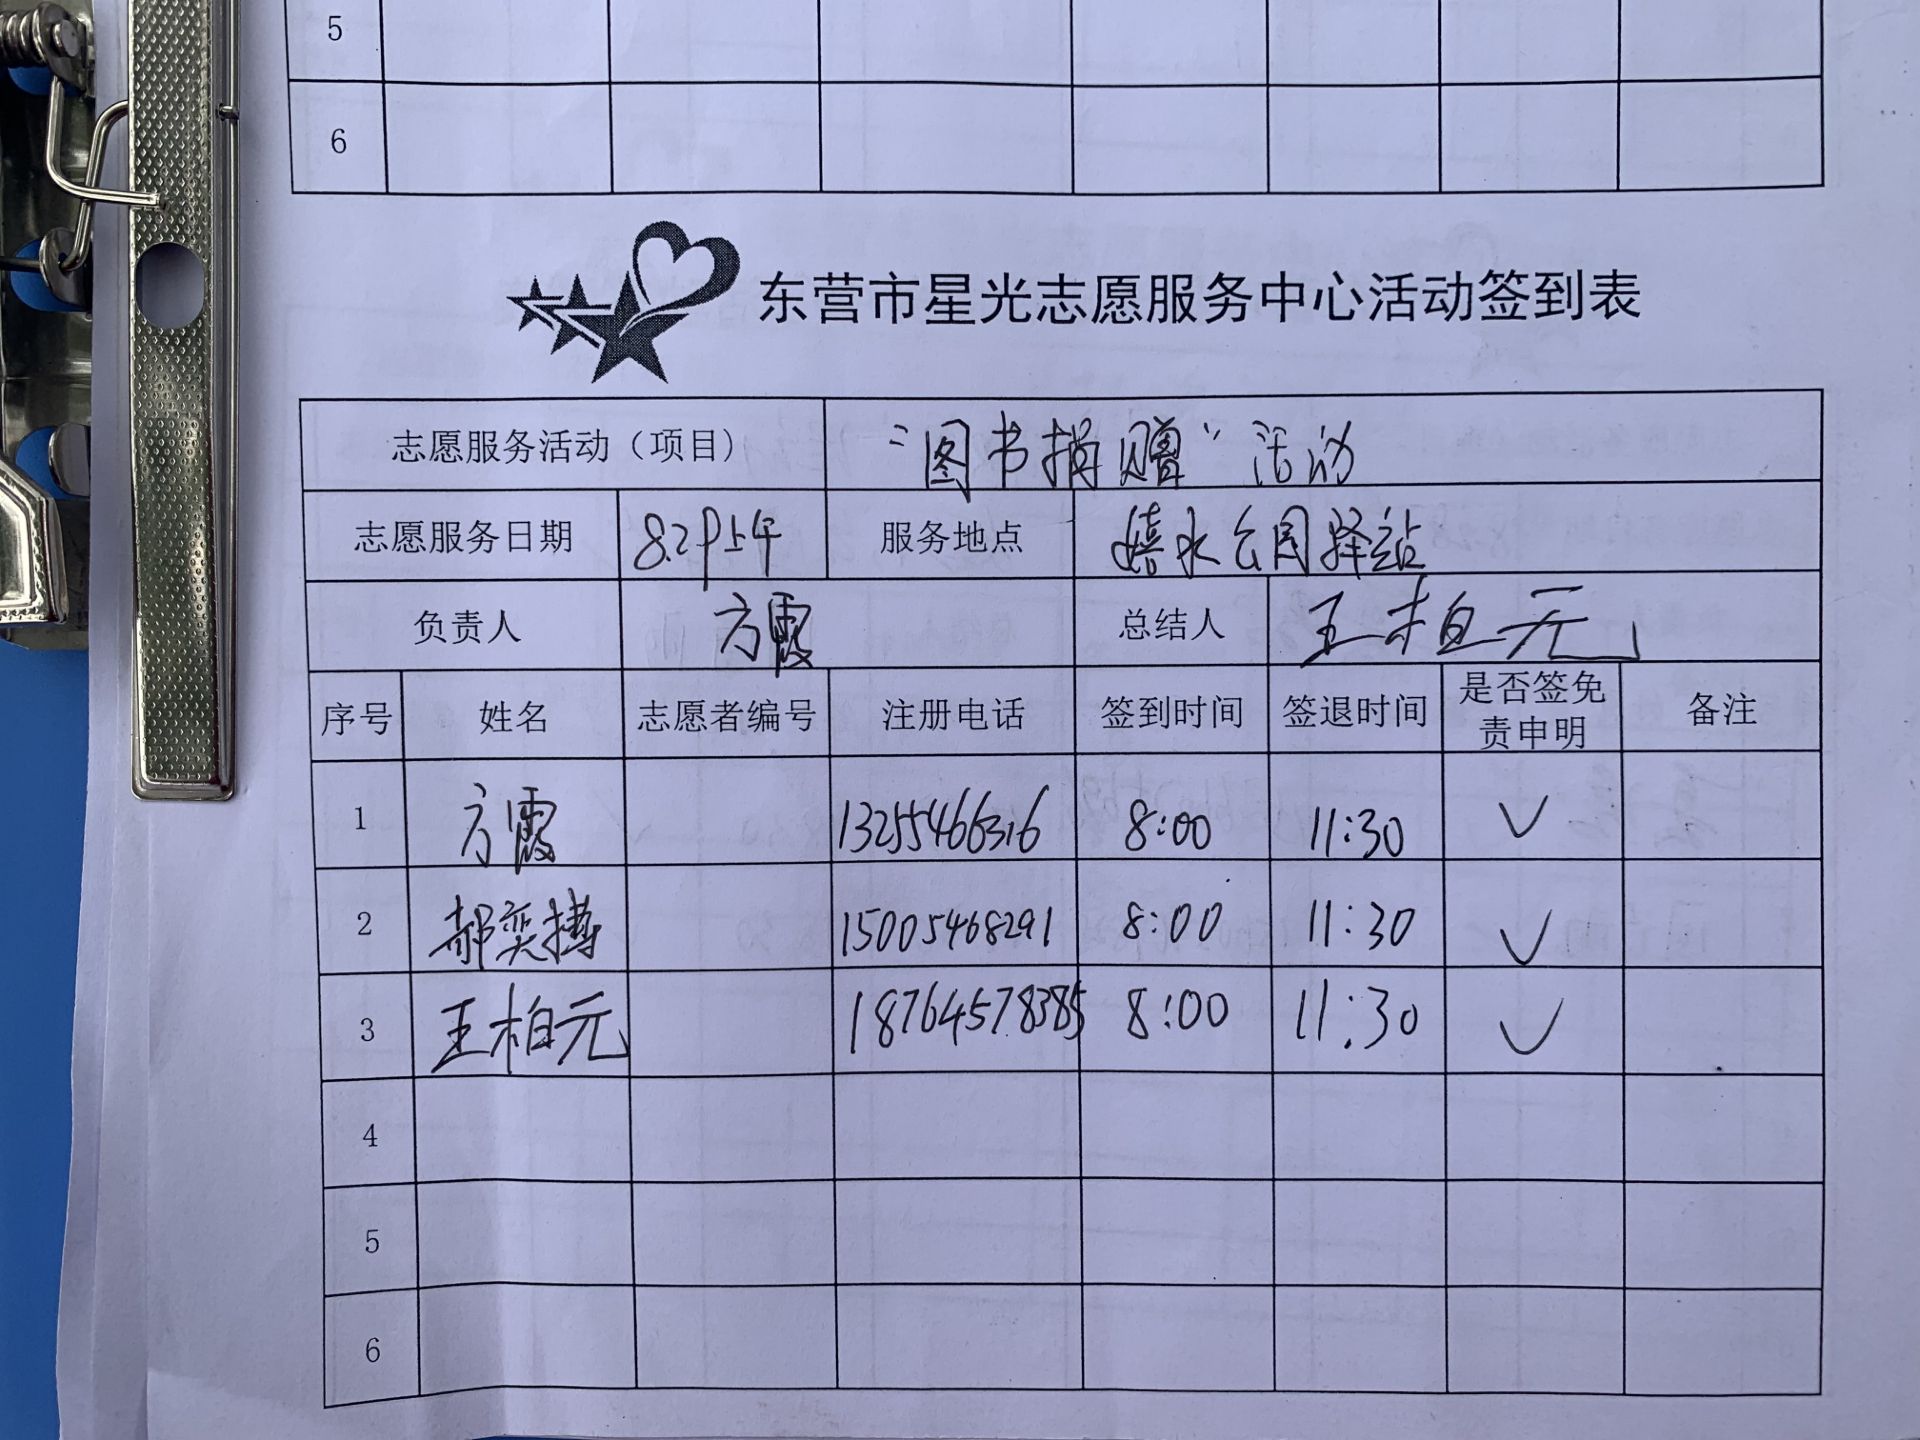 5
6
东营市星光志愿服务中心活动签到表
志愿服务活动（项目） “图书捐赠”活动
志愿服务日期 8.29上午 服务地点 嬉水公园驿站
负责人 方霞 总结人 王柏元
序号 姓名 志愿者编号 注册电话 签到时间 签退时间 是否签免责申明 备注
1 方霞 13255466316 8:00 11:30 ✓
2 郝奕搏 15005468291 8:00 11:30 ✓
3 王柏元 18764578385 8:00 11:30 ✓
4
5
6